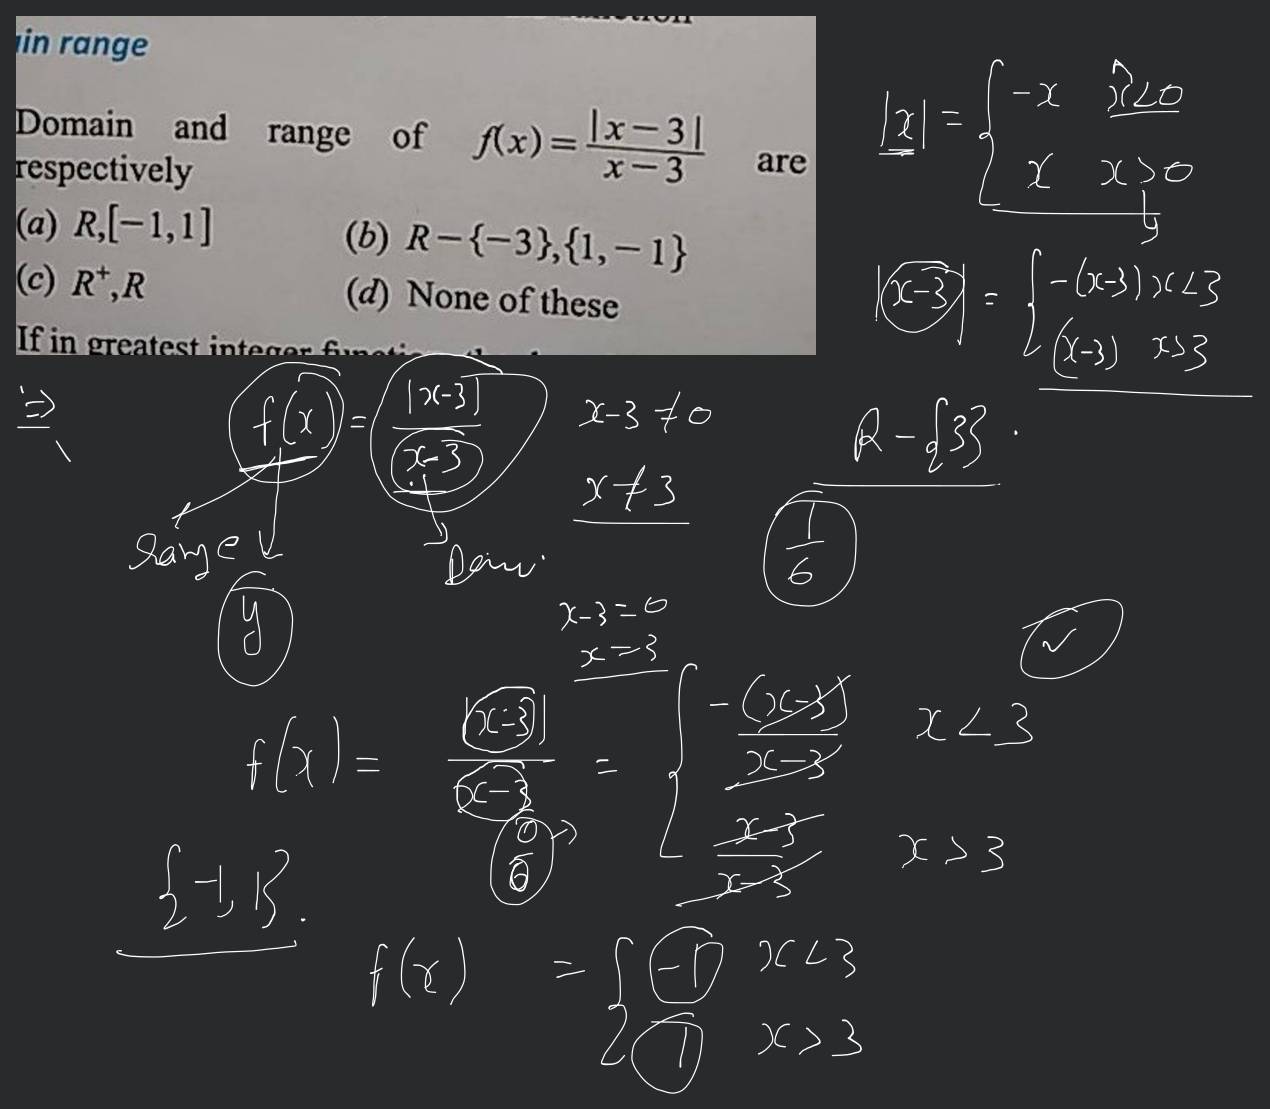 in range
Domain and range of f(x) = |x-3| / x-3 are
respectively
(a) R,[-1,1] (b) R-{-3},{1,-1}
(c) R⁺,R (d) None of these
If in greatest integer
|x| = { -x x<0
x x>0
y
|x-3| = { -(x-3) x<3
(x-3) x>3
⇒ f(x) = |x-3| / x-3 x-3≠0 R-{3}.
x≠3
range Dom
y
1/6
x-3=0
x=3
f(x) = |x-3| / x-3 = { -(x-3) / x-3 x<3
x-3 / x-3 x>3
{-1,1}.
f(x) = { -1 x<3
1 x>3